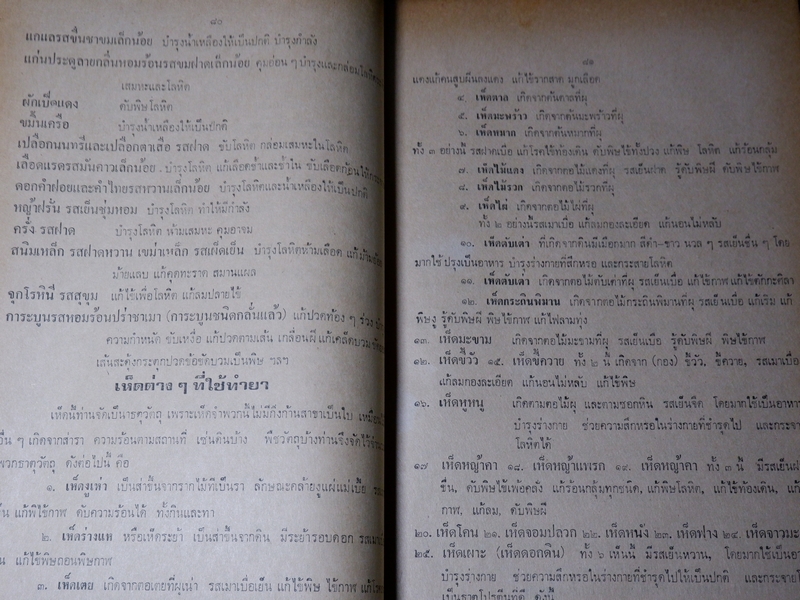 ๘๐
แกแลรสขื่นชาขมเล็กน้อย บำรุงน้ำเหลืองให้เป็นปกติ บำรุงกำลัง
แก่นประดูลายกลิ่นหอมร้อนรสขมฝาดเล็กน้อย คุมอ่อน ๆ บำรุงและกล่อม
เสมหะและโลหิต
ผักเป็ดแดง ดับพิษโลหิต
ขมิ้นเครือ บำรุงน้ำเหลืองให้เป็นปกติ
เปลือกนนทรีและเปลือกตาเสือ รสฝาด ขับโลหิต กล่อมเสมหะในโลหิต
เลือดแรดรสมันคาวเล็กน้อย บำรุงโลหิต แก้เลือดช้ำและช้ำใน ขับเลือดก้อน
ดอกคำฝอยและคำไทยรสหวานเล็กน้อย บำรุงโลหิตและน้ำเหลืองให้เป็นปกติ
หญ้าฝรั่น รสเย็นชุ่มหอม บำรุงโลหิต ทำให้มีกำลัง
ครั่ง รสฝาด บำรุงโลหิต ห้ามเสมหะ คุมอาจม
สนิมเหล็ก รสฝาดหวาน เขม่าเหล็ก รสเผ็ดเย็น บำรุงโลหิตห้ามเลือด
ม้ายแลบ แก้คุดทะราด สมานแผล
จุกโรหินี รสสุขุม แก้ไข้เพื่อโลหิต แก้ลมปลายไข้
การะบูนรสหอมร้อนปร่าซาเมา (การะบูนชนิดกลั่นแล้ว) แก้ปวดท้อง ๆ ร่วง
ความกำหนัด ขับเหงื่อ แก้ปวดตามเส้น เกลื่อนฝี แก้เคล็ดบวม
เส้นสะดุ้งกระตุกปวดข้อขัดบวมเป็นพิษ ฯลฯ
เห็ดต่าง ๆ ที่ใช้ทำยา
เห็ดนี้ท่านจัดเป็นธาตุวัตถุ เพราะเห็ดจำพวกนี้ไม่มีกิ่งก้านสาขาเป็นใบ เหมือน
อื่น ๆ เกิดจากสำรา ความร้อนตามสถานที่ เช่นดินบ้าง พืชวัตถุบ้างท่านจึงจัดไว้
พวกธาตุวัตถุ ดังต่อไปนี้ คือ
๑. เห็ดงูเห่า เป็นส่าขึ้นจากรากไม้ที่เป็นรา ลักษณะคล้ายงูแผ่แม่เบี้ย
แก้พิไข้กาฬ ดับความร้อนได้ ทั้งกินและทา
๒. เห็ดร่างแห หรือเห็ดระย้า เป็นส่าขึ้นจากดิน มีระย้ารอบดอก
แก้ไข้พิษถอนพิษกาฬ
๓. เห็ดเตย เกิดจากตอเตยที่ผุเน่า รสเมาเบื่อเย็น แก้ไข้พิษ ไข้กาฬ
๘๑
แดงแก้คนสูบฝิ่นลงแดง แก้ไข้รากสาด มูกเลือด
๔. เห็ดตาล เกิดจากต้นตาลที่ผุ
๕. เห็ดมะพร้าว เกิดจากต้นมะพร้าวที่ผุ
๖. เห็ดหมาก เกิดจากต้นหมากที่ผุ
ทั้ง ๓ อย่างนี้ รสฝาดเบื่อ แก้โรคไข้ท้องเดิน ดับพิษไข้ทั้งปวง แก้พิษ โลหิต แก้ร้อนกลุ้ม
๗. เห็ดไม้แดง เกิดจากตอไม้แดงที่ผุ รสเย็นฝาด รู้ดับพิษฝี ดับพิษไข้กาฬ
๘. เห็ดไม้รวก เกิดจากตอไม้รวกที่ผุ
๙. เห็ดไผ่ เกิดจากตอไม้ไผ่ที่ผุ
ทั้ง ๒ อย่างนี้รสเมาเบื่อ แก้ลมกองละเอียด แก้นอนไม่หลับ
๑๐. เห็ดตับเต่า ที่เกิดจากดินมีเมือกมาก สีดำ-ขาว นวล ๆ รสเย็นขื่น ๆ โดย
มากใช้ปรุงเป็นอาหาร บำรุงร่างกายที่สึกหรอ และกระสายโลหิต
๑๑. เห็ดตับเต่า เกิดจากตอไม้ตับเต่าที่ผุ รสเย็นเบื่อ แก้ไข้กาฬ แก้ไข้ดักกะศิลา
๑๒. เห็ดกระถินพิมาน เกิดจากตอไม้กระถินพิมานที่ผุ รสเย็นเบื่อ แก้เริม แก้
พิษงู รู้ดับพิษฝี พิษไข้กาฬ แก้ไฟลามทุ่ง
๑๓. เห็ดมะขาม เกิดจากตอไม้มะขามที่ผุ รสเย็นเบื่อ รู้ดับพิษฝี พิษไข้กาฬ
๑๔. เห็ดขี้วัว ๑๕. เห็ดขี้ควาย ทั้ง ๒ นี้ เกิดจาก (กอง) ขี้วัว, ขี้ควาย, รสเมาเบื่อ
แก้ลมกองละเอียด แก้นอนไม่หลับ แก้ไข้พิษ
๑๖. เห็ดหูหนู เกิดตามตอไม้ผุ และตามซอกหิน รสเย็นจืด โดยมากใช้เป็นอาหาร
บำรุงร่างกาย ช่วยความสึกหรอในร่างกายที่ชำรุดไป และกระจาย
โลหิตได้
๑๗ เห็ดหญ้าคา ๑๘. เห็ดหญ้าแพรก ๑๙. เห็ดหญ้าคา ทั้ง ๓ นี้ มีรสเย็น
ขื่น, ดับพิษไข้เพ้อคลั่ง แก้ร้อนกลุ้มทุกชนิด, แก้พิษโลหิต, แก้ไข้ท้องเดิน, แก้
กาฬ, แก้ลม, ดับพิษฝี
๒๐. เห็ดโคน ๒๑. เห็ดจอมปลวก ๒๒. เห็ดหนัง ๒๓. เห็ดฟาง ๒๔. เห็ดจาวมะ
๒๕. เห็ดเผาะ (เห็ดดอกดิน) ทั้ง ๖ เห็นนี้ มีรสเย็นหวาน, โดยมากใช้เป็น
บำรุงร่างกาย ช่วยความสึกหรอในร่างกายที่ชำรุดไปให้เป็นปกติ และกระจาย
เป็นธาตุโปรตีนที่ดี ดังนี้